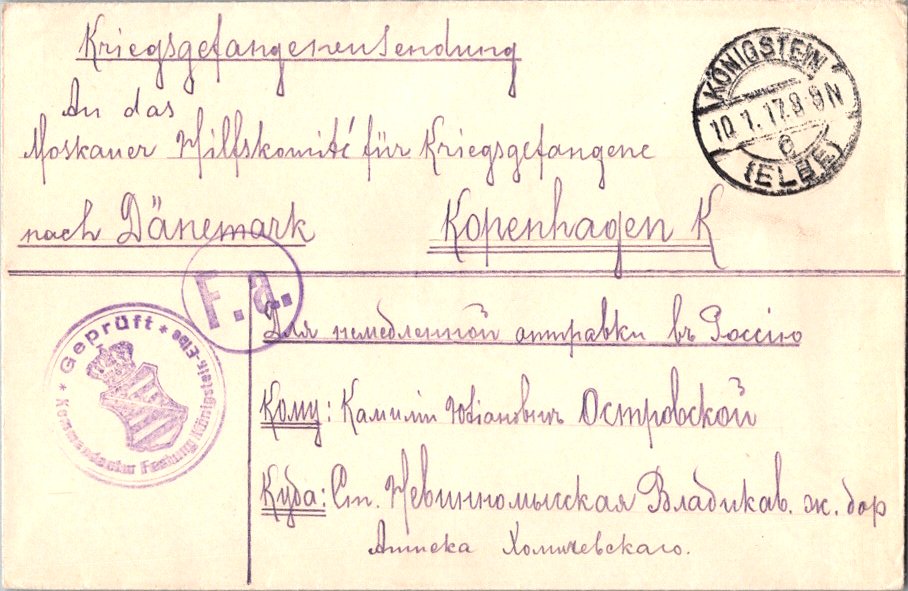 Kriegsgefangenensendung
An das
Moskauer Hilfskomité für Kriegsgefangene
nach Dänemark Kopenhagen K
KÖNIGSTEIN
10.1.17.8-9N
c
(ELBE)
F. a.
Geprüft
Kommandantur Festung Königstein-Elbe
Для немедленной отправки въ Россію
Кому: Камиліи Островской
Куда: Ст. Невинномысская Владикав. ж. дор
Аптека Хомичевскаго.